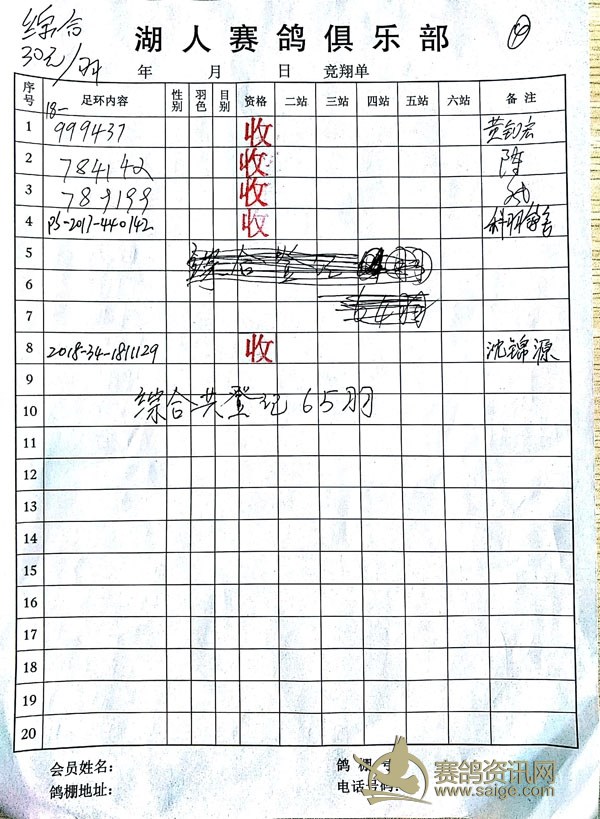 综合
30元/羽
湖人赛鸽俱乐部
④
年 月 日 竞翔单
序号 足环内容 性别 羽色 目别 资格 二站 三站 四站 五站 六站 备注
18-
1 999437 收 黄钊宏
2 784142 收 陈
3 789199 收 斌
4 PS-2017-440142 收 科翔鸽舍
5 综合登
6
7
8 2018-34-1811129 收 沈锦源
9
10 综合共登记65羽
11
12
13
14
15
16
17
18
19
20
会员姓名: 鸽棚号
鸽棚地址: 电话号码:
赛鸽资讯网
www.saige.com